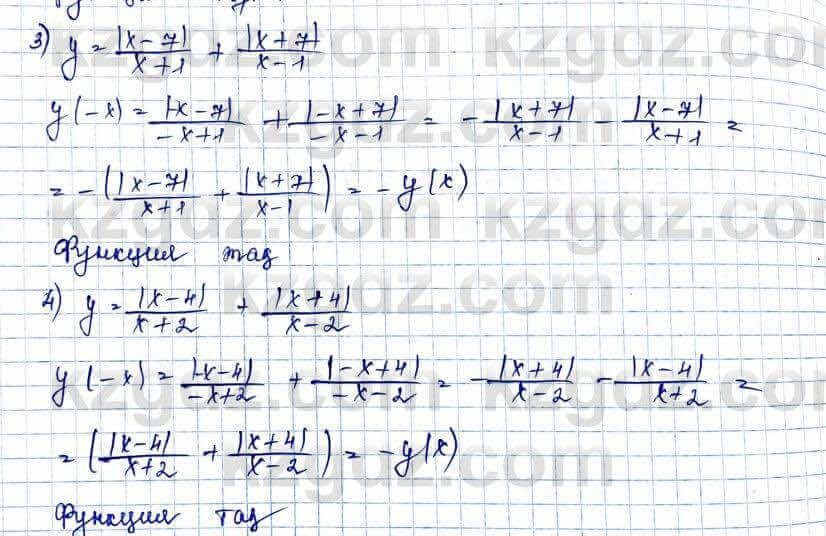 3) y = |x-7|/x+1 + |x+7|/x-1
y(-x) = |-x-7|/-x+1 + |-x+7|/-x-1 = -|x+7|/x-1 - |x-7|/x+1 =
= -(|x-7|/x+1 + |x+7|/x-1) = -y(x)
Функция тад
4) y = |x-4|/x+2 + |x+4|/x-2
y(-x) = |-x-4|/-x+2 + |-x+4|/-x-2 = -|x+4|/x-2 - |x-4|/x+2 =
= (|x-4|/x+2 + |x+4|/x-2) = -y(x)
Функция тад
kzgdz.com kzgdz.com
kzgdz.com kzgdz.com
kzgdz.com kzgdz.com
kzgdz.com
kzgdz.com kzgdz.com
kzgdz.com